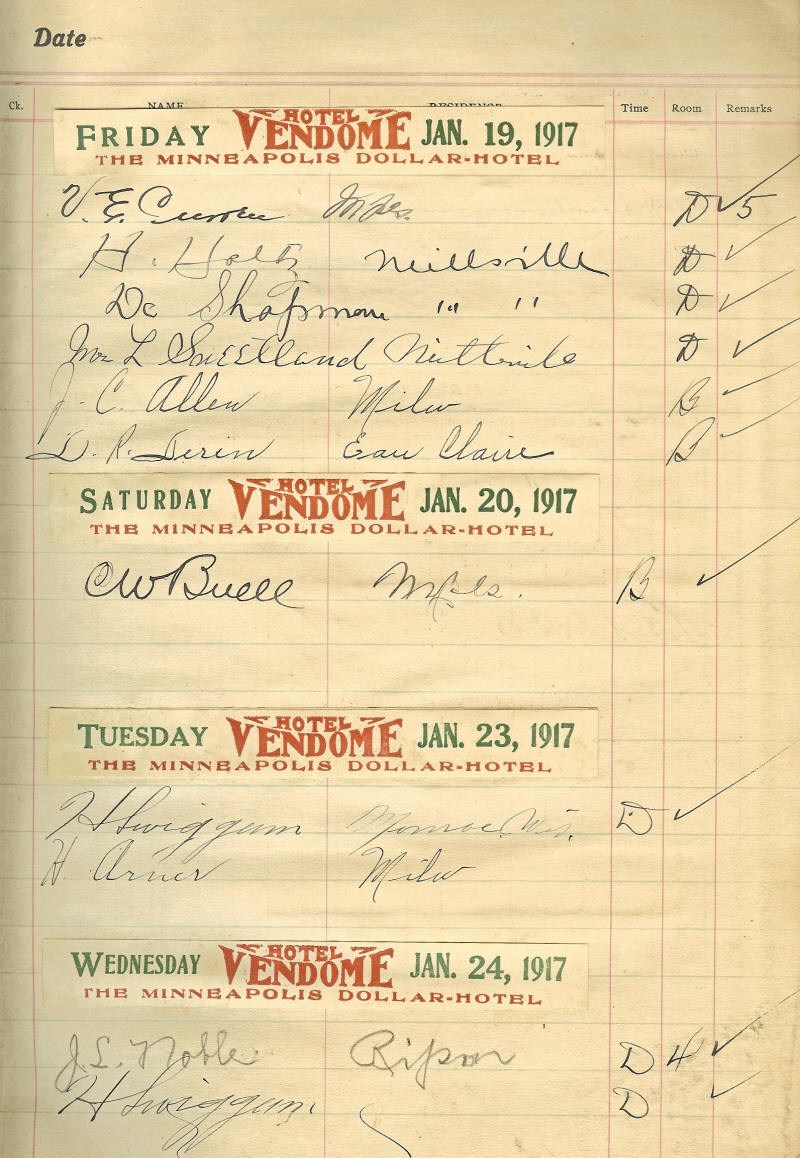 Date
Ck. NAME RESIDENCE Time Room Remarks
FRIDAY HOTEL VENDOME JAN. 19, 1917
THE MINNEAPOLIS DOLLAR-HOTEL
V. E. Mpls. D ✓ 5
H. Holtz Neillsville D ✓
De Shapman " " " " D ✓
L Sweetland D ✓
J. C. Allen Milw B ✓
D. R. Derin Eau Claire B ✓
SATURDAY HOTEL VENDOME JAN. 20, 1917
THE MINNEAPOLIS DOLLAR-HOTEL
C W Buell Mpls. B ✓
TUESDAY HOTEL VENDOME JAN. 23, 1917
THE MINNEAPOLIS DOLLAR-HOTEL
H Swiggum Monroe Wis. D ✓
H. Arner Milw
WEDNESDAY HOTEL VENDOME JAN. 24, 1917
THE MINNEAPOLIS DOLLAR-HOTEL
J. L. Noble Ripon D 4 ✓
H Swiggum D ✓